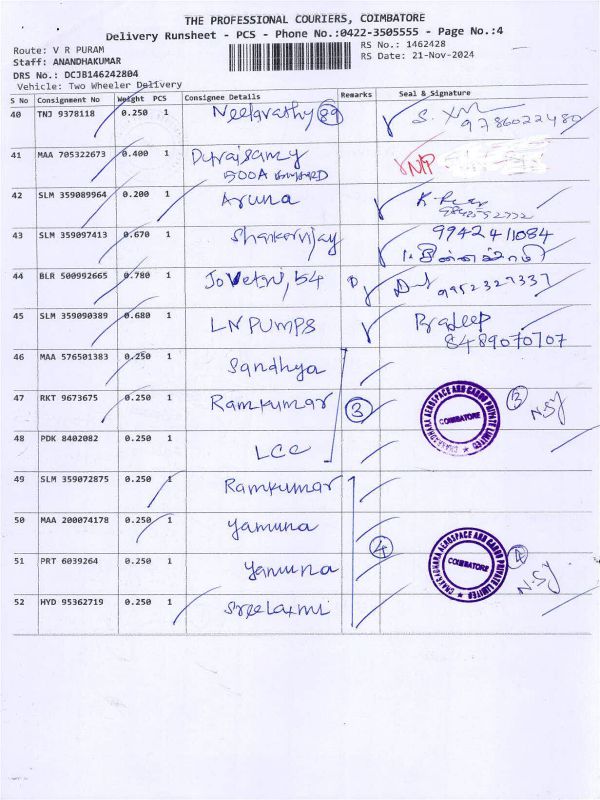 THE PROFESSIONAL COURIERS, COIMBATORE
Delivery Runsheet - PCS - Phone No.:0422-3505555 - Page No.:4
Route: V R PURAM
RS No.: 1462428
Staff: ANANDHAKUMAR
RS Date: 21-Nov-2024
DRS No.: DCJB146242804
Vehicle: Two Wheeler Delivery
S No Consignment No Weight PCS Consignee Details Remarks Seal & Signature
40 TNJ 9378118 0.250 1 Neelavathy 89 9786022480
41 MAA 705322673 0.400 1 Duraisamy N/P
42 SLM 359089964 0.200 1 Aruna
43 SLM 359097413 0.670 1 Shankervijay 9942411084
44 BLR 500992665 0.780 1 54 9952327337
45 SLM 359090389 0.680 1 LN PUMPS Pradeep
8489070707
46 MAA 576501383 0.250 1 Sandhya
47 RKT 9673675 0.250 1 Ramkumar 3 CHAKRADHARA AEROSPACE AND CARGO PRIVATE LIMITED COIMBATORE 3
48 PDK 8402082 0.250 1 LCC
49 SLM 359072875 0.250 1 Ramkumar
50 MAA 200074178 0.250 1 Yamuna
51 PRT 6039264 0.250 1 Yamuna 4 CHAKRADHARA AEROSPACE AND CARGO PRIVATE LIMITED COIMBATORE 4
52 HYD 95362719 0.250 1 Sreelaxmi